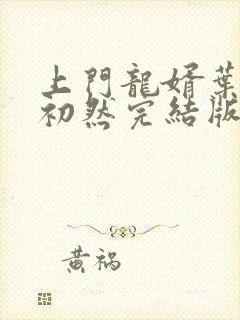 上門龍婿葉
初然完結版
黃禍